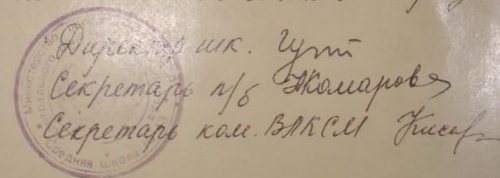 Директор шк.
Секретарь п/б Жомарова
Секретарь ком. ВЛКСМ
Министерство
Средняя школа